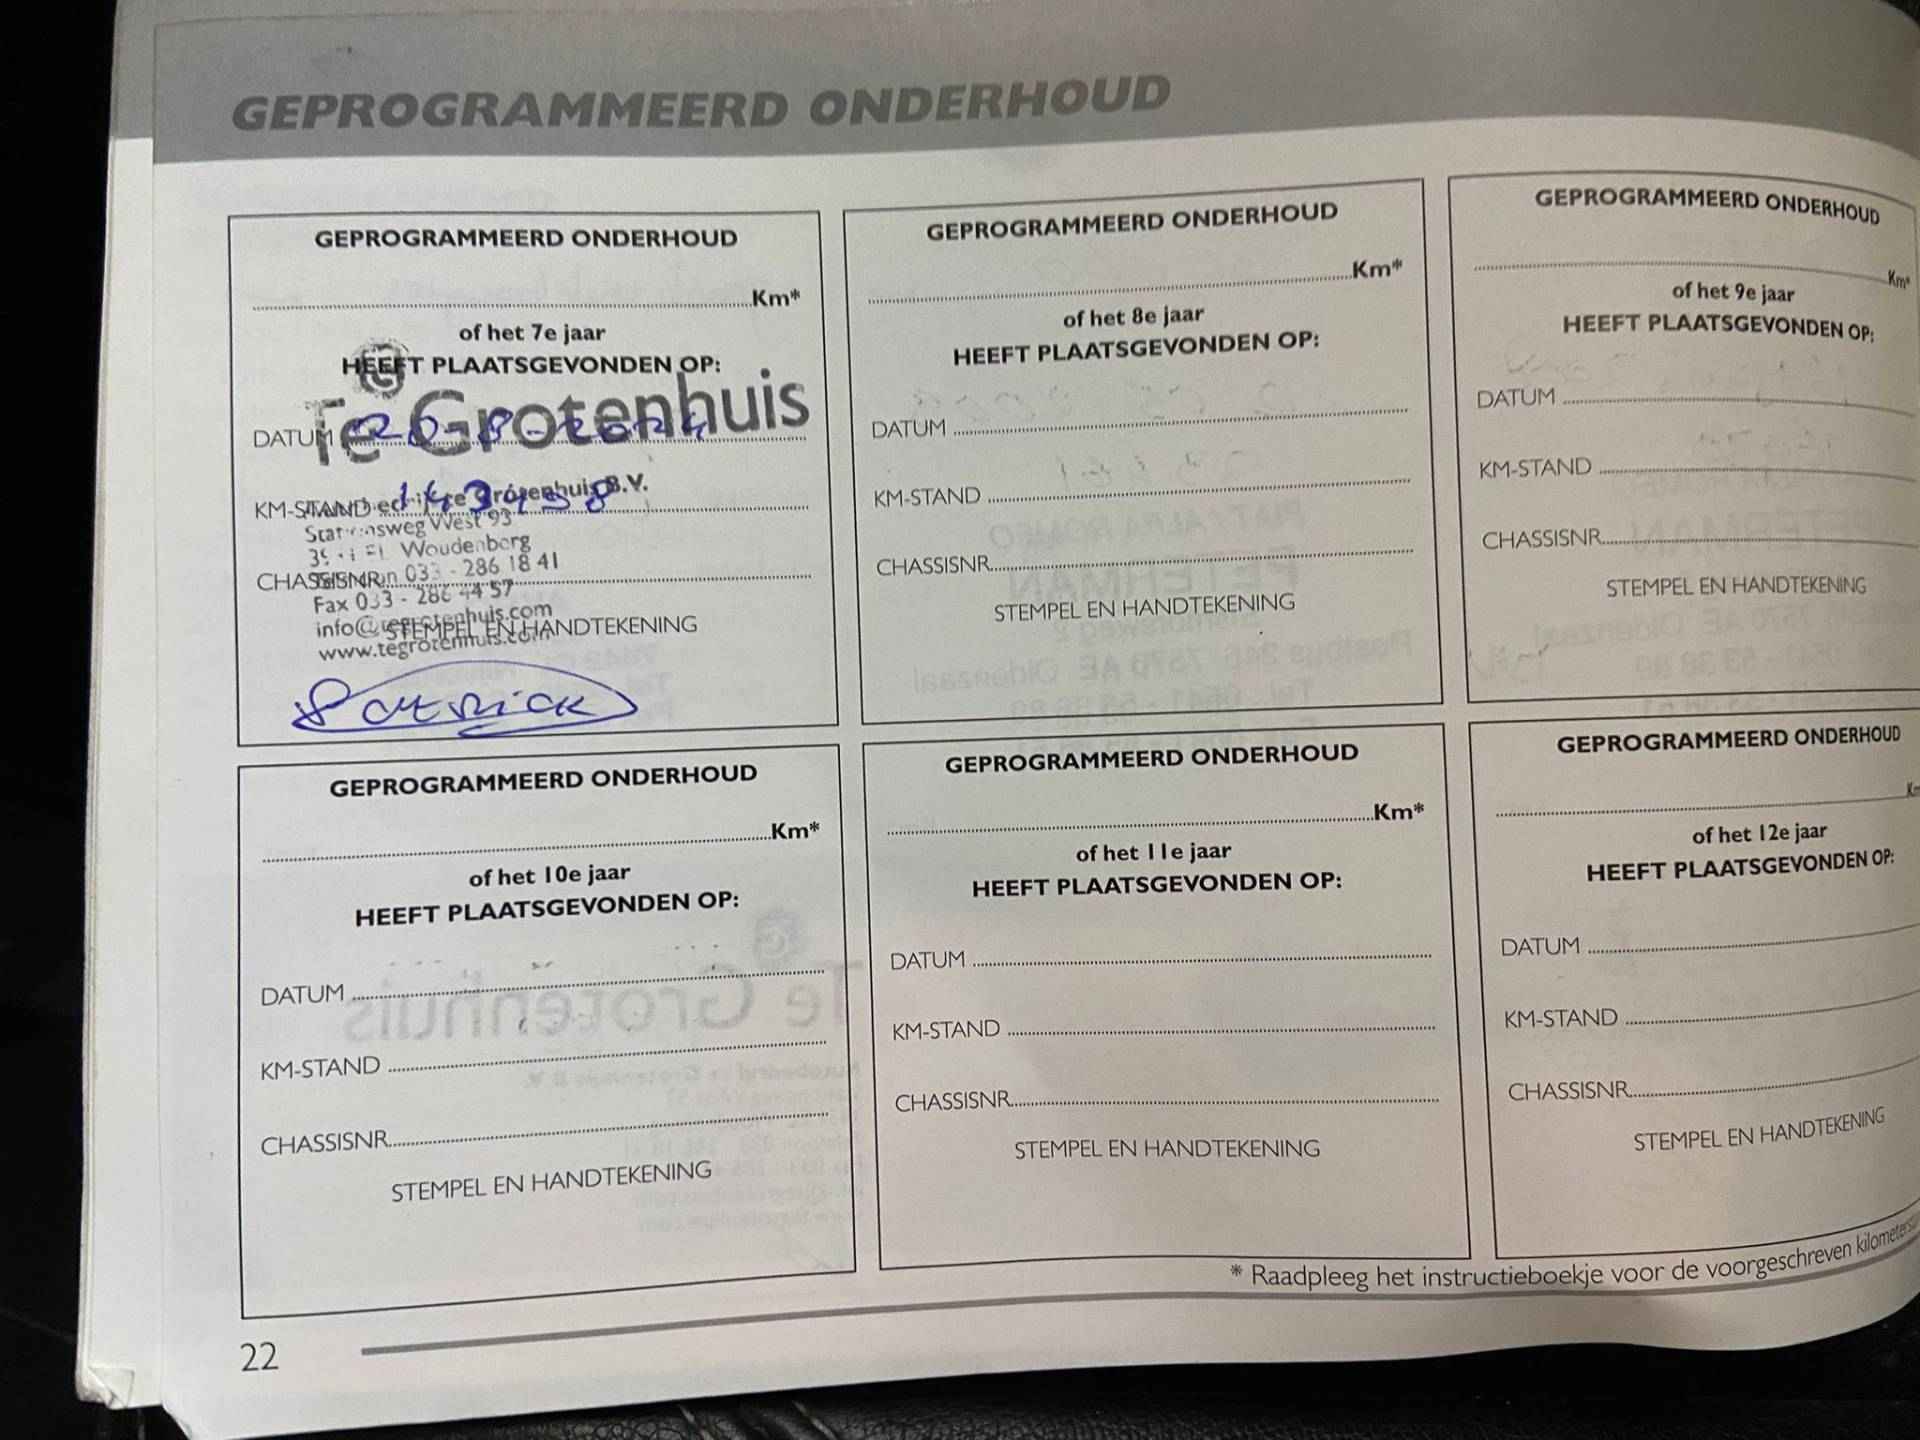 GEPROGRAMMEERD ONDERHOUD
GEPROGRAMMEERD ONDERHOUD
Km*
of het 7e jaar
HEEFT PLAATSGEVONDEN OP:
Te Grotenhuis
DATUM
KM-STAND
Grotenhuis B.V.
West 93
Woudenberg
CHASSISNR
033 - 286 18 41
Fax 033 - 286 44 57
info@tegrotenhuis.com
STEMPEL EN HANDTEKENING
www.tegrotenhuis.com
Patrick
GEPROGRAMMEERD ONDERHOUD
Km*
of het 8e jaar
HEEFT PLAATSGEVONDEN OP:
DATUM
KM-STAND
CHASSISNR
STEMPEL EN HANDTEKENING
GEPROGRAMMEERD ONDERHOUD
Km*
of het 9e jaar
HEEFT PLAATSGEVONDEN OP:
DATUM
KM-STAND
CHASSISNR
STEMPEL EN HANDTEKENING
GEPROGRAMMEERD ONDERHOUD
Km*
of het 10e jaar
HEEFT PLAATSGEVONDEN OP:
DATUM
KM-STAND
CHASSISNR
STEMPEL EN HANDTEKENING
GEPROGRAMMEERD ONDERHOUD
Km*
of het 11e jaar
HEEFT PLAATSGEVONDEN OP:
DATUM
KM-STAND
CHASSISNR
STEMPEL EN HANDTEKENING
GEPROGRAMMEERD ONDERHOUD
of het 12e jaar
HEEFT PLAATSGEVONDEN OP:
DATUM
KM-STAND
CHASSISNR
STEMPEL EN HANDTEKENING
* Raadpleeg het instructieboekje voor de voorgeschreven
22